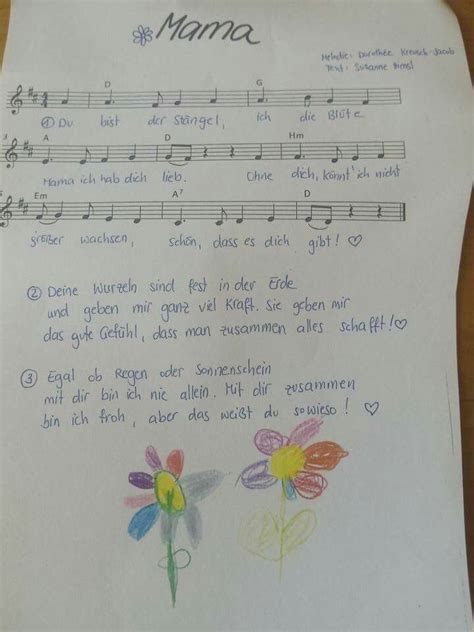 Mama
Melodie: Dorothée Kreusch-Jacob
Text: Susanne
D G
① Du bist der Stängel, ich die Blüte
3 A D Hm
Mama ich hab dich lieb. Ohne dich, könnt' ich nicht
Em A7 D
größer wachsen, schön, dass es dich gibt! ♡
② Deine Wurzeln sind fest in der Erde
und geben mir ganz viel Kraft. Sie geben mir
das gute Gefühl, dass man zusammen alles schafft! ♡
③ Egal ob Regen oder Sonnenschein
mit dir bin ich nie allein. Mit dir zusammen
bin ich froh, aber das weißt du sowieso! ♡